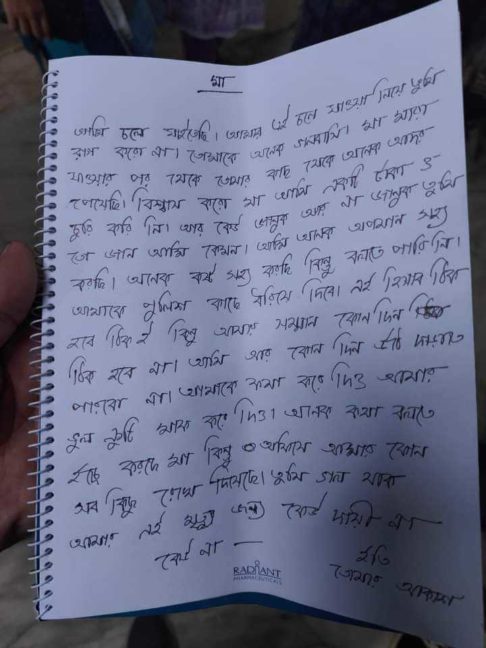 মা
আমি চলে যাইতেছি। আমার এই চলে যাওয়া নিয়ে তুমি
রাগ করো না। তোমাকে অনেক ভালবাসি। মা মারা
যাওয়ার পর থেকে তোমার কাছ থেকে অনেক আদর
পেয়েছি। বিশ্বাস করো মা আমি একটি টাকা ও
চুরি করি নি। আর কেউ জানুক আর না জানুক তুমি
তো জান আমি কেমন। আমি অনেক অপমান সহ্য
করছি। অনেক কষ্ট সহ্য করছি কিন্তু বলতে পারি নি।
আমাকে পুলিশ কাছে ধরিয়ে দিবে। এই হিসাব ঠিক
হবে ঠিক ই কিন্তু আমার সম্মান কোন দিন
ঠিক হবে না। আমি আর কোন দিন উঠে দাড়াতে
পারবো না। আমাকে ক্ষমা করে দিও আমার
ভুল ত্রুটি মাফ করে দিও। অনেক কথা বলতে
ইচ্ছে করছে মা কিন্তু ও অফিসে আমার কোন
সব কিছু রেখে দিয়েছে। তুমি ভাল থাক
আমার এই মৃত্যু জন্য কেউ দায়ী না
কেউ না —
ইতি
তোমার আকাশ
RADIANT
PHARMACEUTICALS